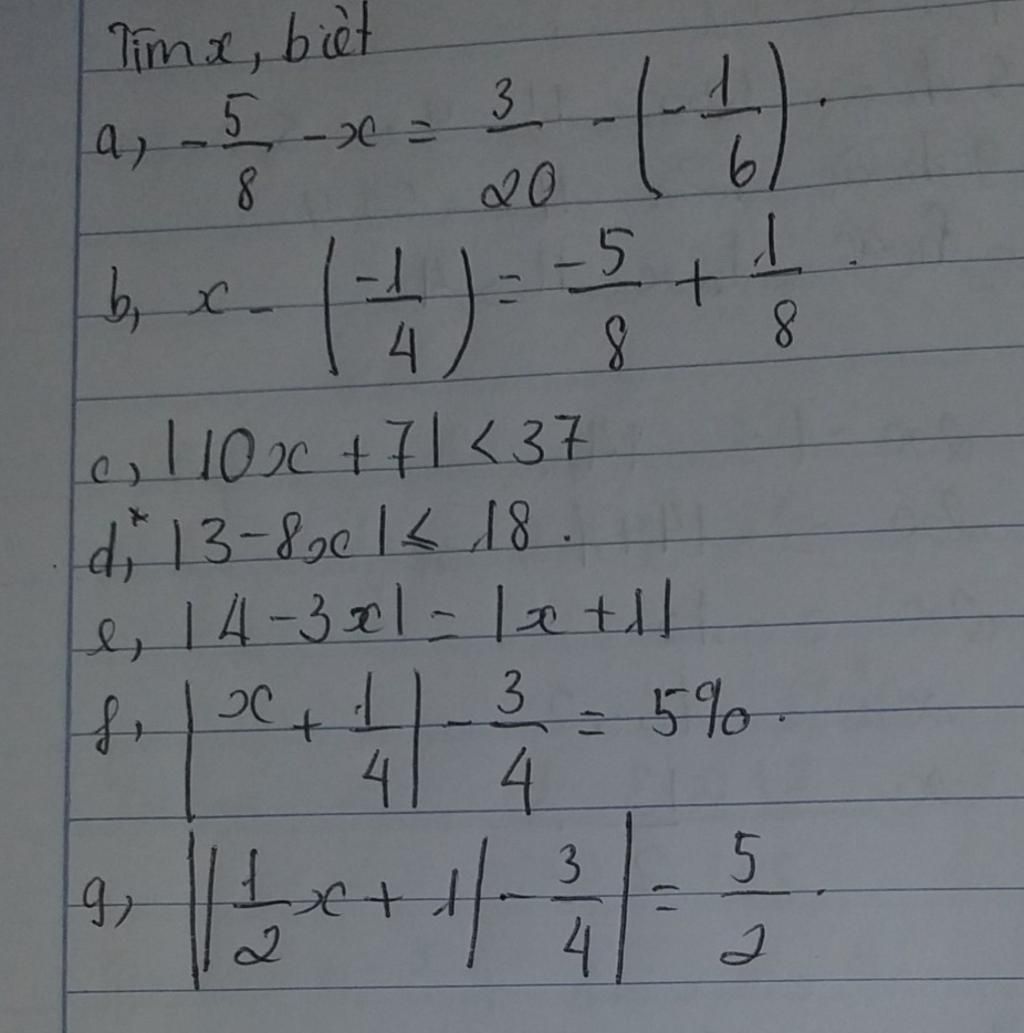 Tìm x, biết
a, -5/8 - x = 3/20 - (-1/6).
b, x - (-1/4) = -5/8 + 1/8.
c, |10x + 7| < 37
d,* |3 - 8x| ≤ 18.
e, |4 - 3x| = |x + 1|
f, |x + 1/4| - 3/4 = 5%.
g, ||1/2x + 1| - 3/4| = 5/2.